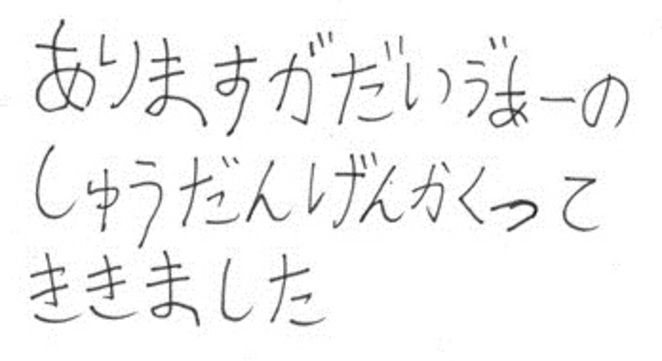 ありますがだいゔぁーの
しゅうだんげんかくって
ききました